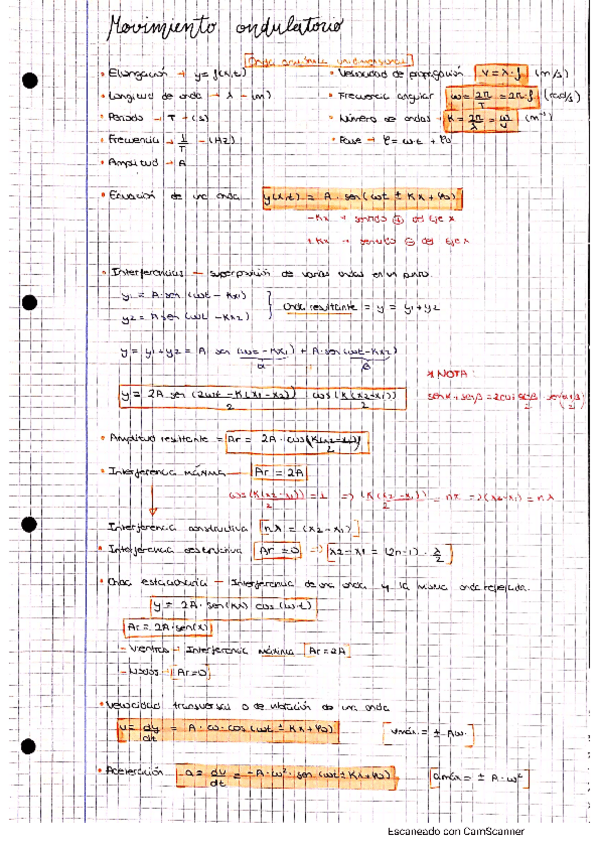 Movimiento ondulatorio
Onda armónica unidimensional
• Elongación → y = f(x,t)
• Velocidad de propagación v = λ·f (m/s)
• Longitud de onda → λ - (m)
• Frecuencia angular ω = 2π/T = 2π·f (rad/s)
• Periodo → T → (s)
• Número de ondas → K = 2π/λ = ω/v (m⁻¹)
• Frecuencia → 1/T - (Hz)
• Fase → φ = ω·t + φ0
• Amplitud → A
• Ecuación de una onda y(x,t) = A · sen(ωt ± Kx + φ0)
-Kx → sentido ⊕ del eje x
+Kx → sentido ⊖ del eje x
• Interferencias — superposición de varias ondas en un punto.
y1 = A·sen (ωt - Kx1)
y2 = A·sen (ωt - Kx2)
Onda resultante = y = y1 + y2
y = y1 + y2 = A sen (ωt - Kx1) + A·sen(ωt - Kx2)
α β
* NOTA:
y = 2A·sen (2ωt - K(x1-x2))/2 cos (K(x2-x1))/2
• Amplitud resultante = Ar = 2A·cos(K(x2-x1))/2
• Interferencia máxima — Ar = 2A
cos(K(x2-x1))/2 = 1 => (K(x2-x1))/2 = nπ => (x2-x1) = nλ
Interferencia constructiva [nλ = (x2-x1)]
• Interferencia destructiva [Ar = 0] => [x2-x1 = (2n-1)·λ/2]
• Onda estacionaria — Interferencia de una onda y la misma onda reflejada.
y = 2A·sen(kx) cos (ω·t)
Ar = 2A·sen(x)
- Vientres - Interferencia máxima [Ar = 2A]
- Nodos - [Ar = 0]
• Velocidad transversal o de vibración de una onda
v = dy/dt = A·ω·cos (ωt ± Kx + φ0) [vmáx = ± Aω.]
• Aceleración - a = dv/dt = -A·ω²·sen (ωt ± Kx + φ0) [amáx = ± A·ω²]
Escaneado con CamScanner